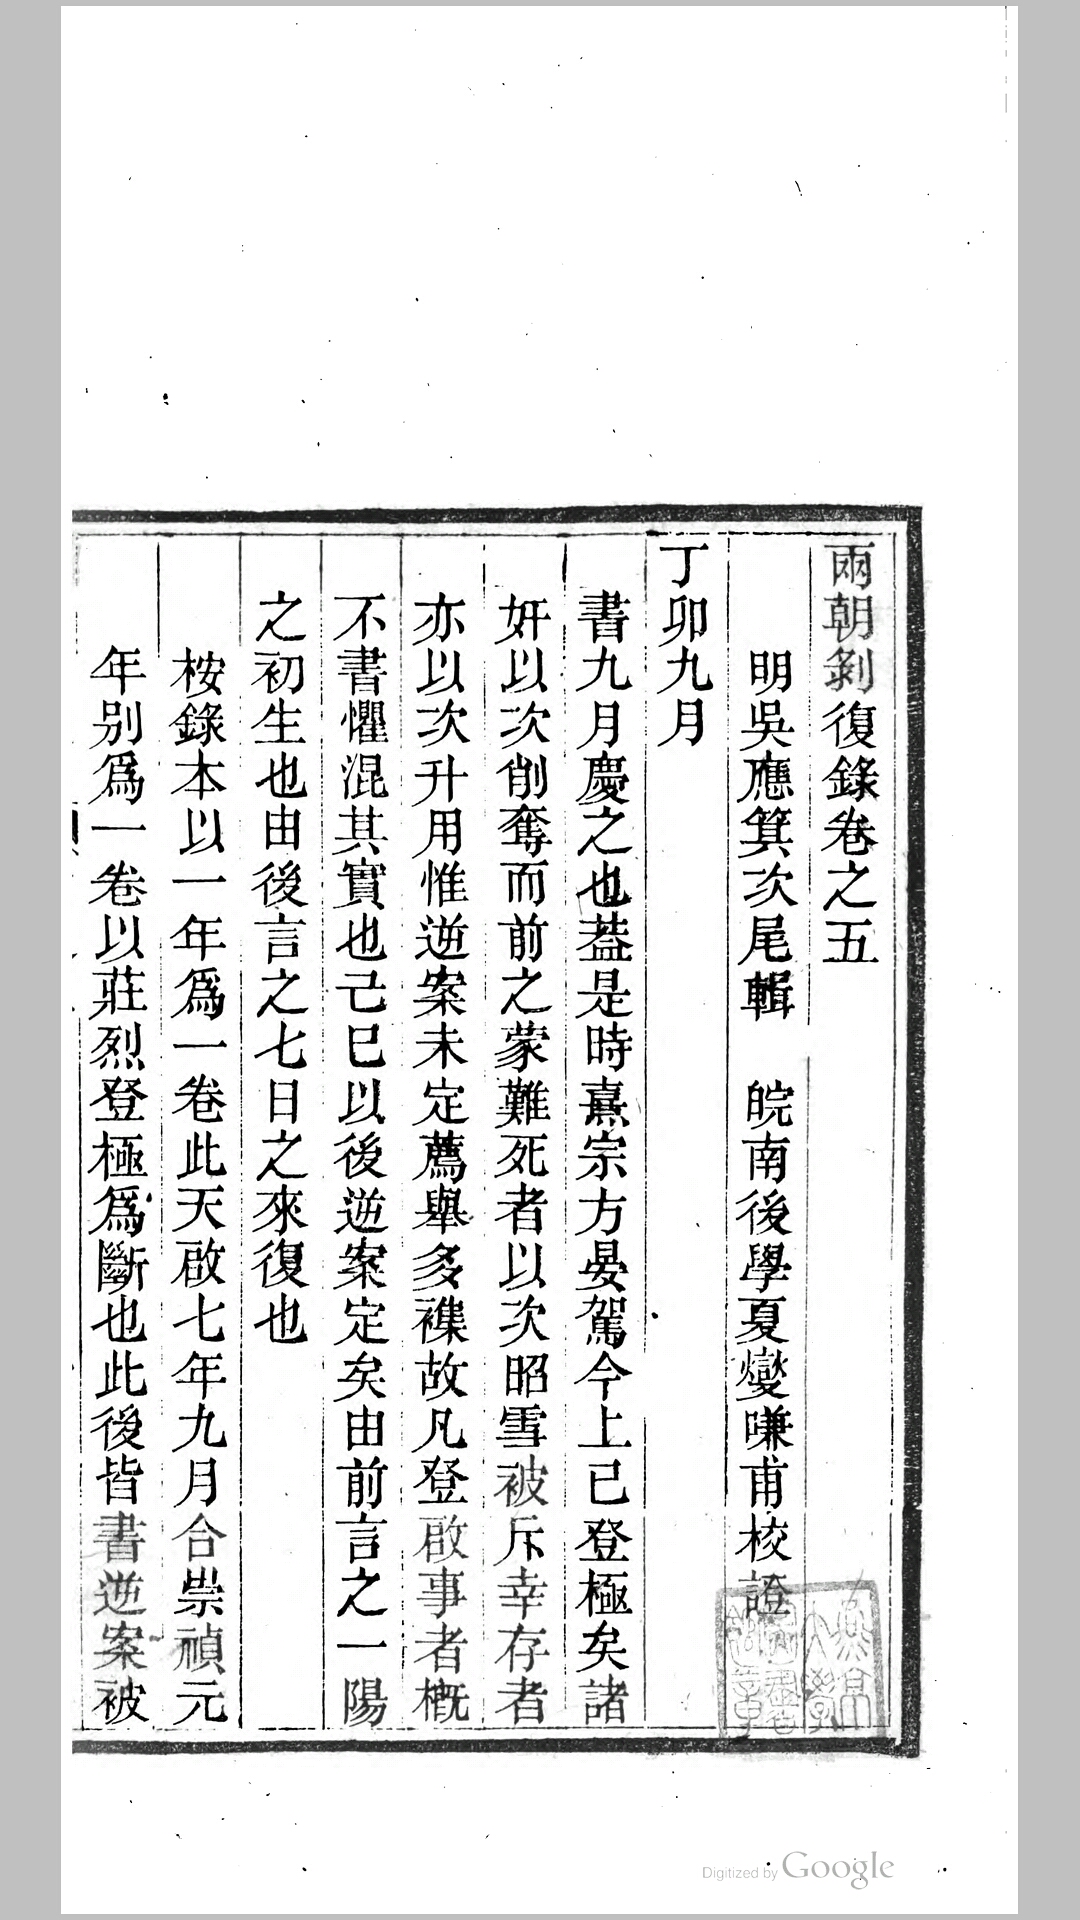 兩朝剝復錄卷之五
明吳應箕次尾輯　皖南後學夏燮嗛甫校證
丁卯九月
書九月慶之也葢是時熹宗方晏駕今上已登極矣諸
奸以次削奪而前之蒙難死者以次昭雪被斥幸存者
亦以次升用惟逆案未定薦舉多襍故凡登啟事者概
不書懼混其實也己巳以後逆案定矣由前言之一陽
之初生也由後言之七日之來復也
桉錄本以一年爲一卷此天啟七年九月合崇禎元
年別爲一卷以莊烈登極爲斷也此後皆書逆案被
Digitized by Google